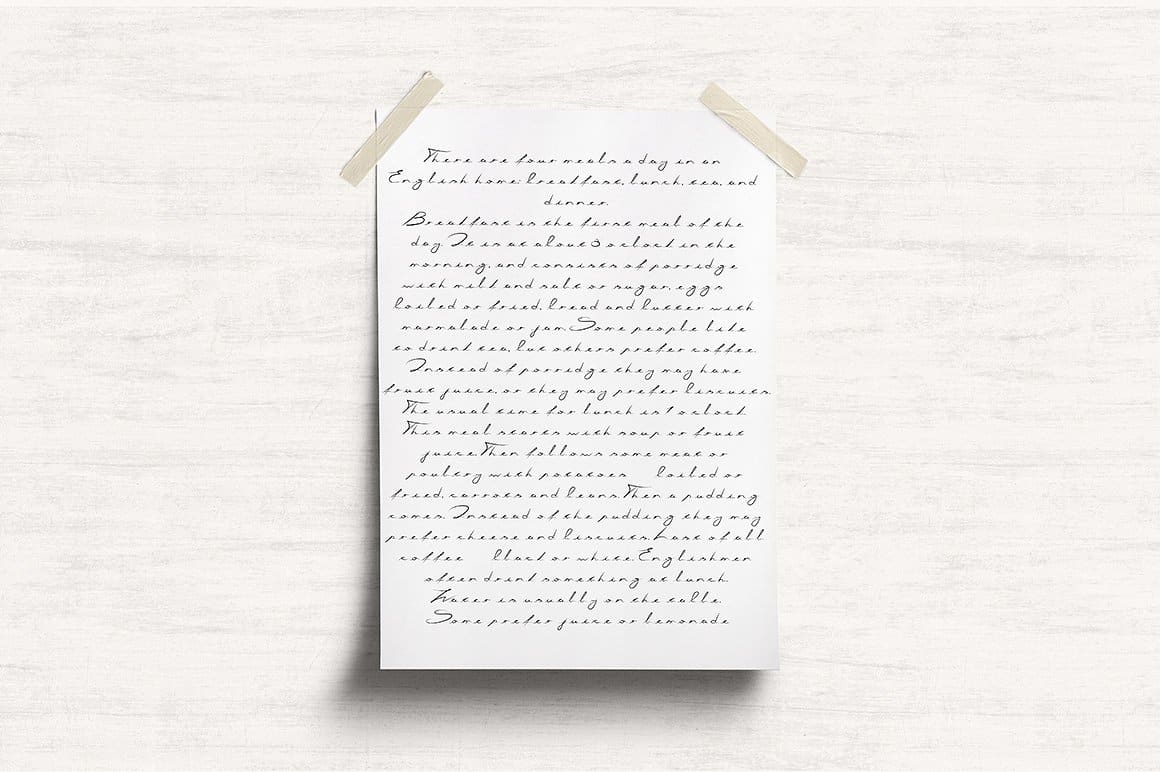 There are four meals a day in an
English home: breakfast, lunch, tea, and
dinner.
Breakfast is the first meal of the
day. It is at about 8 o'clock in the
morning, and consists of porridge
with milk and salt or sugar, eggs
boiled or fried, bread and butter with
marmalade or jam. Some people like
to drink tea, but others prefer coffee.
Instead of porridge they may have
fruit juice, or they may prefer biscuits.
The usual time for lunch is 1 o'clock.
This meal starts with soup or fruit
juice. Then follows some meat or
poultry with potatoes boiled or
fried, carrots and beans. Then a pudding
comes. Instead of the pudding they may
prefer cheese and biscuits. Last of all
coffee black or white. Englishmen
often drink something at lunch.
Water is usually on the table.
Some prefer juice or lemonade